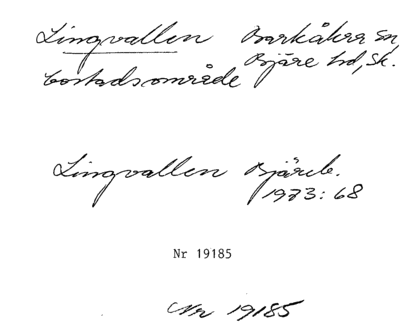 Lingvallen Barkåkra sn,
bostadsområde Bjäre hd, Sk.
Lingvallen Bjäreb.
1973: 68
Nr 19185
Nr 19185